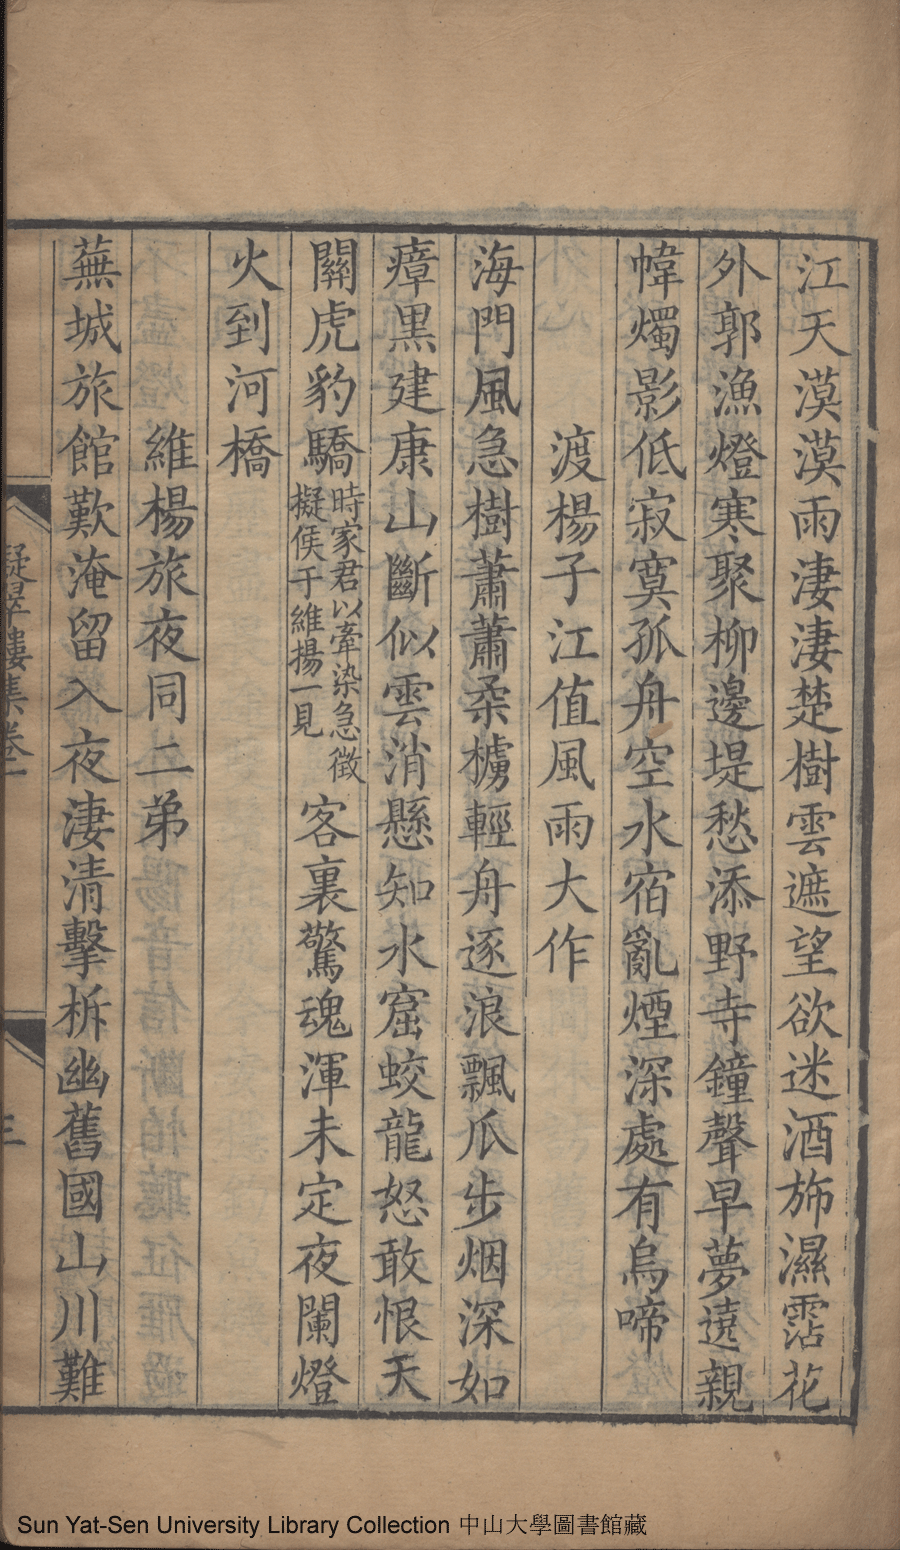 江天漠漠雨淒淒楚樹雲遮望欲迷酒斾濕霑花
外郭漁燈寒聚柳邊堤愁添野寺鐘聲早夢遶親
幃燭影低寂寞孤舟空水宿亂煙深處有烏啼
渡楊子江值風雨大作
海門風急樹蕭蕭柔櫓輕舟逐浪飄瓜步烟深如
瘴黒建康山斷似雲消懸知水窟蛟龍怒敢恨天
關虎豹驕時家君以牽染急徵擬侯于維揚一見客裏驚魂渾未定夜闌燈
火到河橋
維楊旅夜同二弟
蕪城旅館歎淹留入夜淒清擊柝幽舊國山川難
凝翠樓集卷二
三
Sun Yat-Sen University Library Collection 中山大學圖書館藏